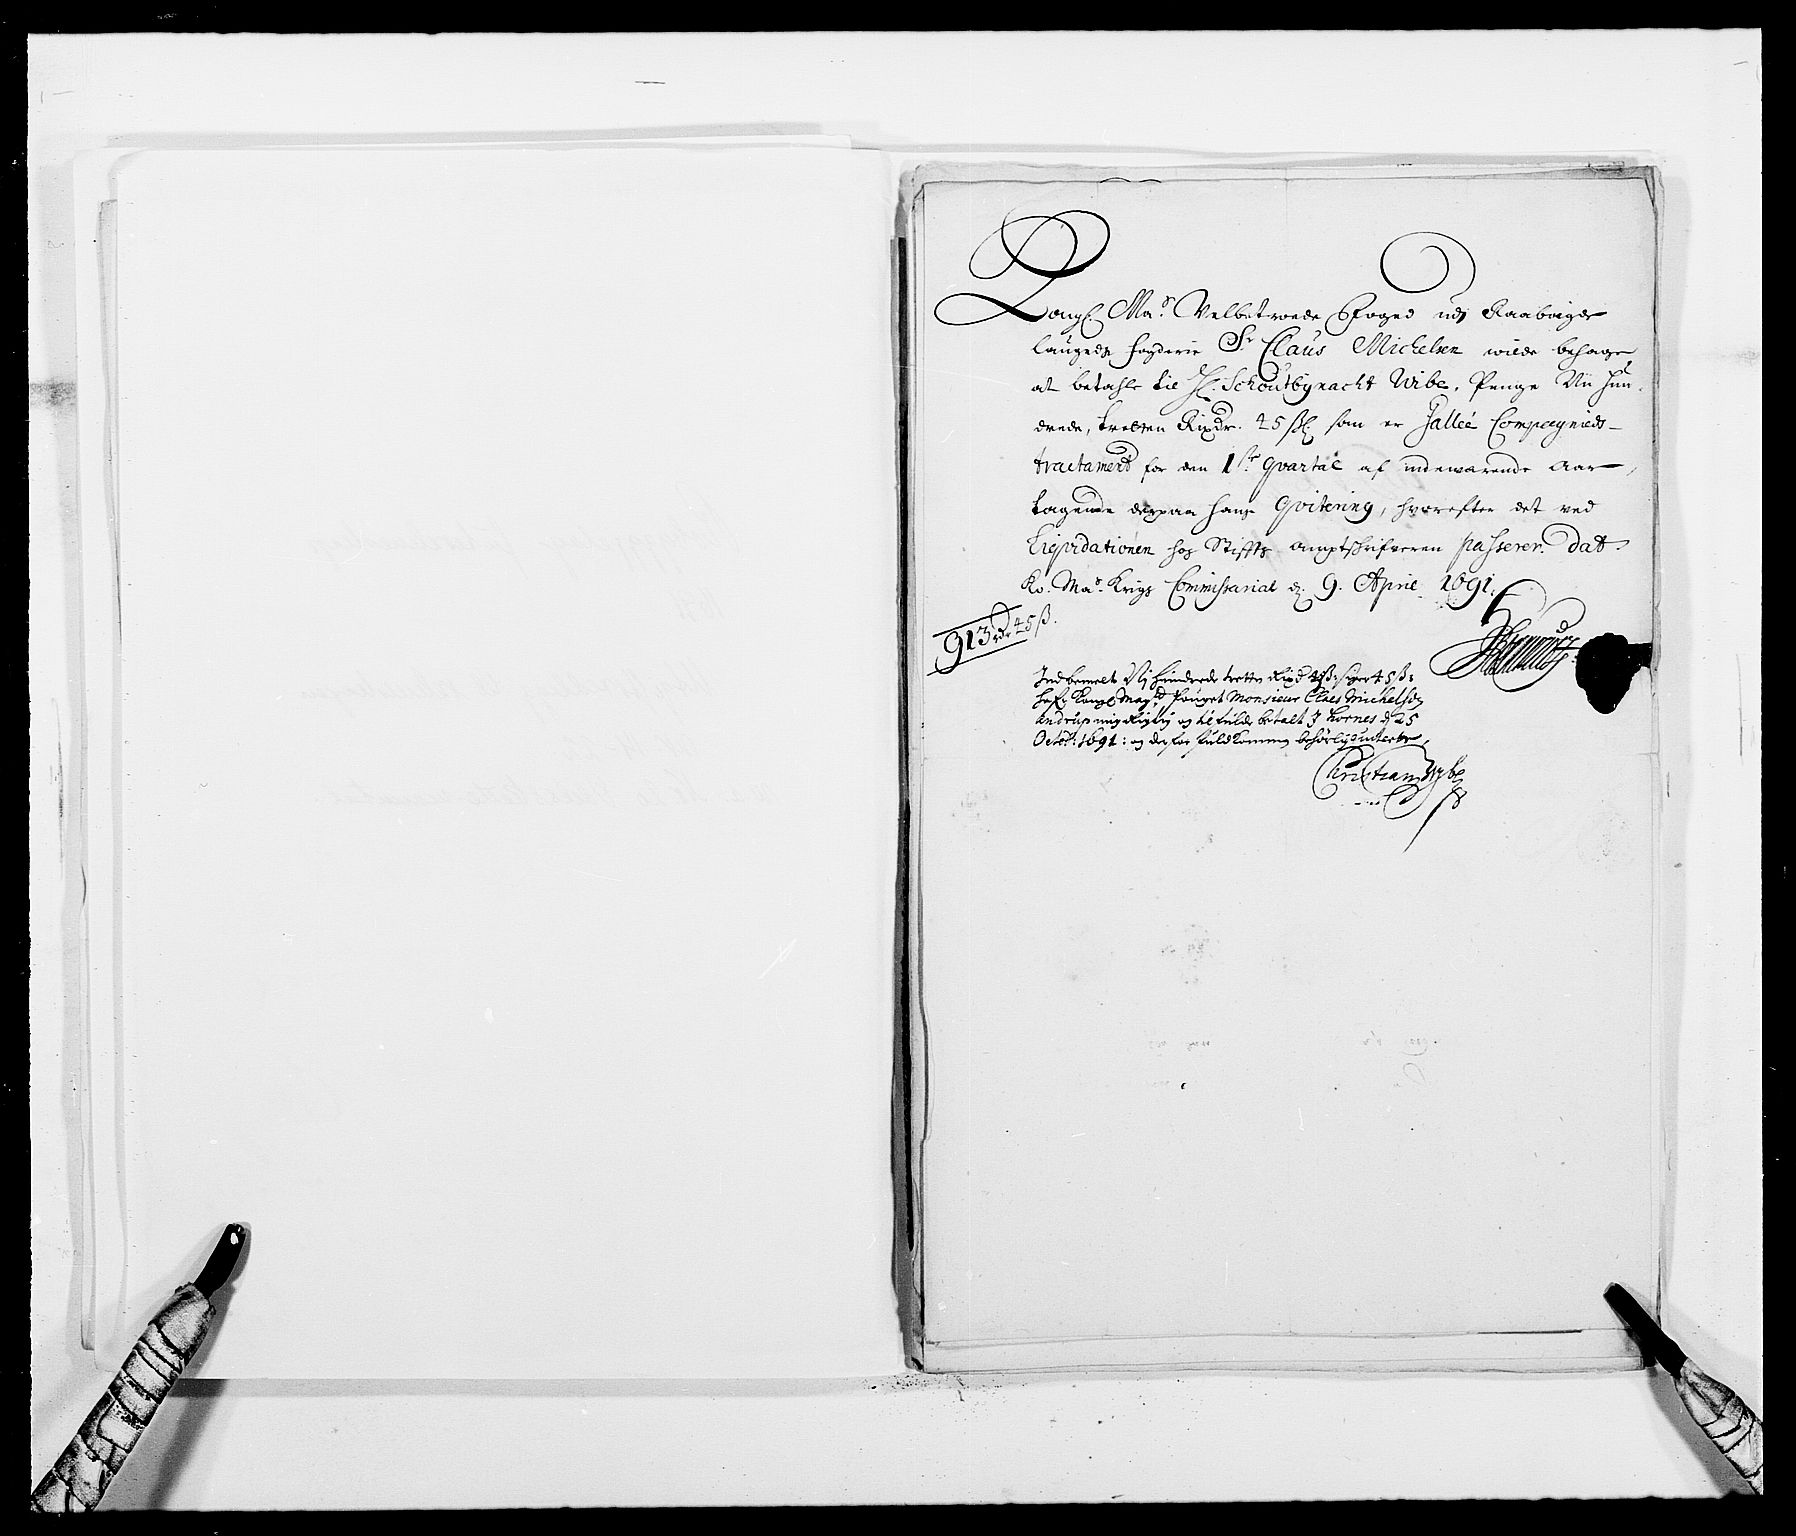 Kongl. Ma:ts Velbetroede Foged udj Raabøigde
laugets fogderie Sr Claus Michelsen wilde behage
at betahle til H. Schoutbynacht Wibe, Penge Nii hun-
drede, tretten Rixdr. 45 sk som er Jallée Compagnieds-
tractament for den 1ste qvartal af indeværende Aar,
tagende derpaa hans qvitering, hvorefter det ved
Liqvidationen hos Stiffts-amptschrifveren passerer. Dat
Ko. Ma:ts Krigs Commissariat d. 9. April 1691.
913 rdr 45 ß.
Indbemelte Nij Hundrede trette Rixd 45 ß: siger 45 ß:
hafr Kongl May:td fouget Monsieur Claes Michelsen
Andrup mig rigtig og til fulde betalt J Hornes d 25
Octob: 1691: og derfor fuldkommen behørlig
Christian Wybe